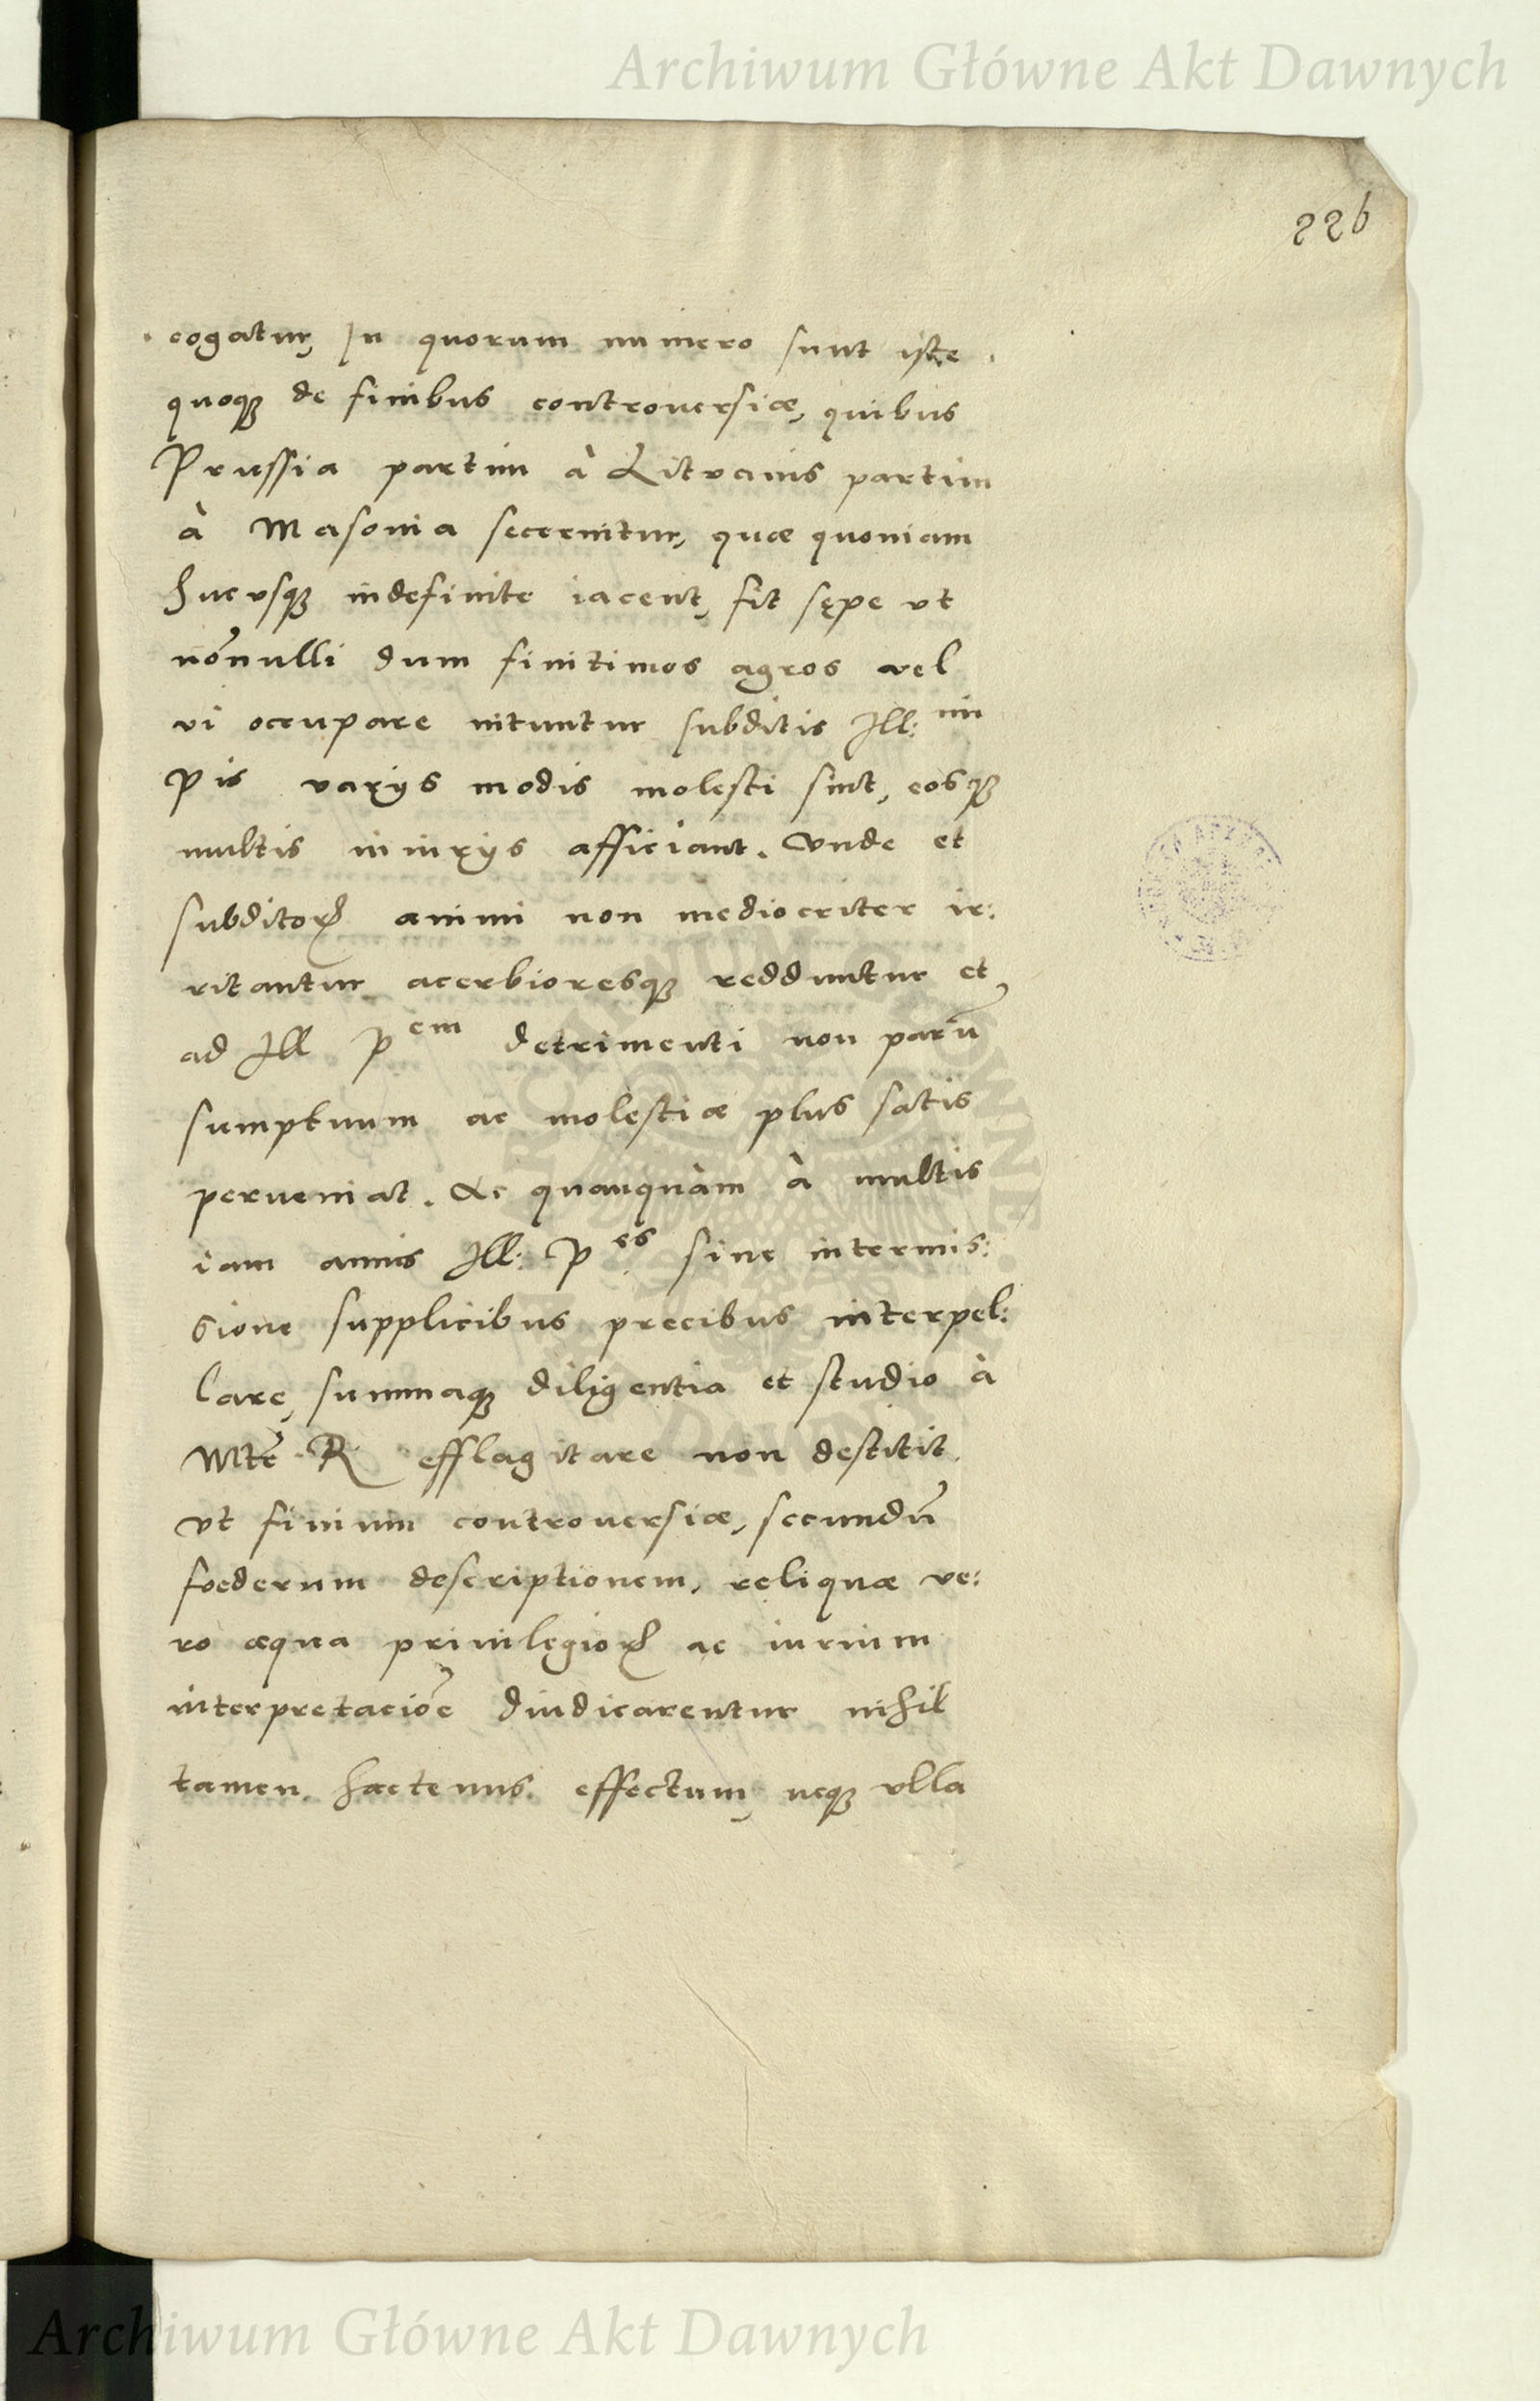 Archiwum Główne Akt Dawnych
226
cogatur, In quorum numero sunt istę
quoqꝫ de finibus controuersiæ, quibus
Prussia partim à Lituanis partim
à Masouia secernitur, quæ quoniam
hucvsqꝫ indefinite iacent, fit sępe vt
nōnulli dum finitimos agros vel
vi occupare nituntur subditis Ill: mi
Pis varijs modis molesti sint, eosqꝫ
multis iniurijs afficiant. Vnde et
subditoꝝ animi non mediocriter ir:
ritantur acerbioresqꝫ redduntur et
ad Ill P em detrimenti non parū
sumptuum ac molestiæ plus satis
perueniat. Ac quanquàm à multis
iam annis Ill: P es sine intermis:
sione supplicibus precibus interpel:
lare, summaqꝫ diligentia et studio à
Mte R efflagitare non destitit
vt finium controuersiæ, secundū
foederum descriptionem, reliquæ ve:
ro æqua priuilegioꝝ ac iurium
interpretaciōe diiudicarentur nihil
tamen hactenus effectum, neqꝫ vlla
Archiwum Główne Akt Dawnych